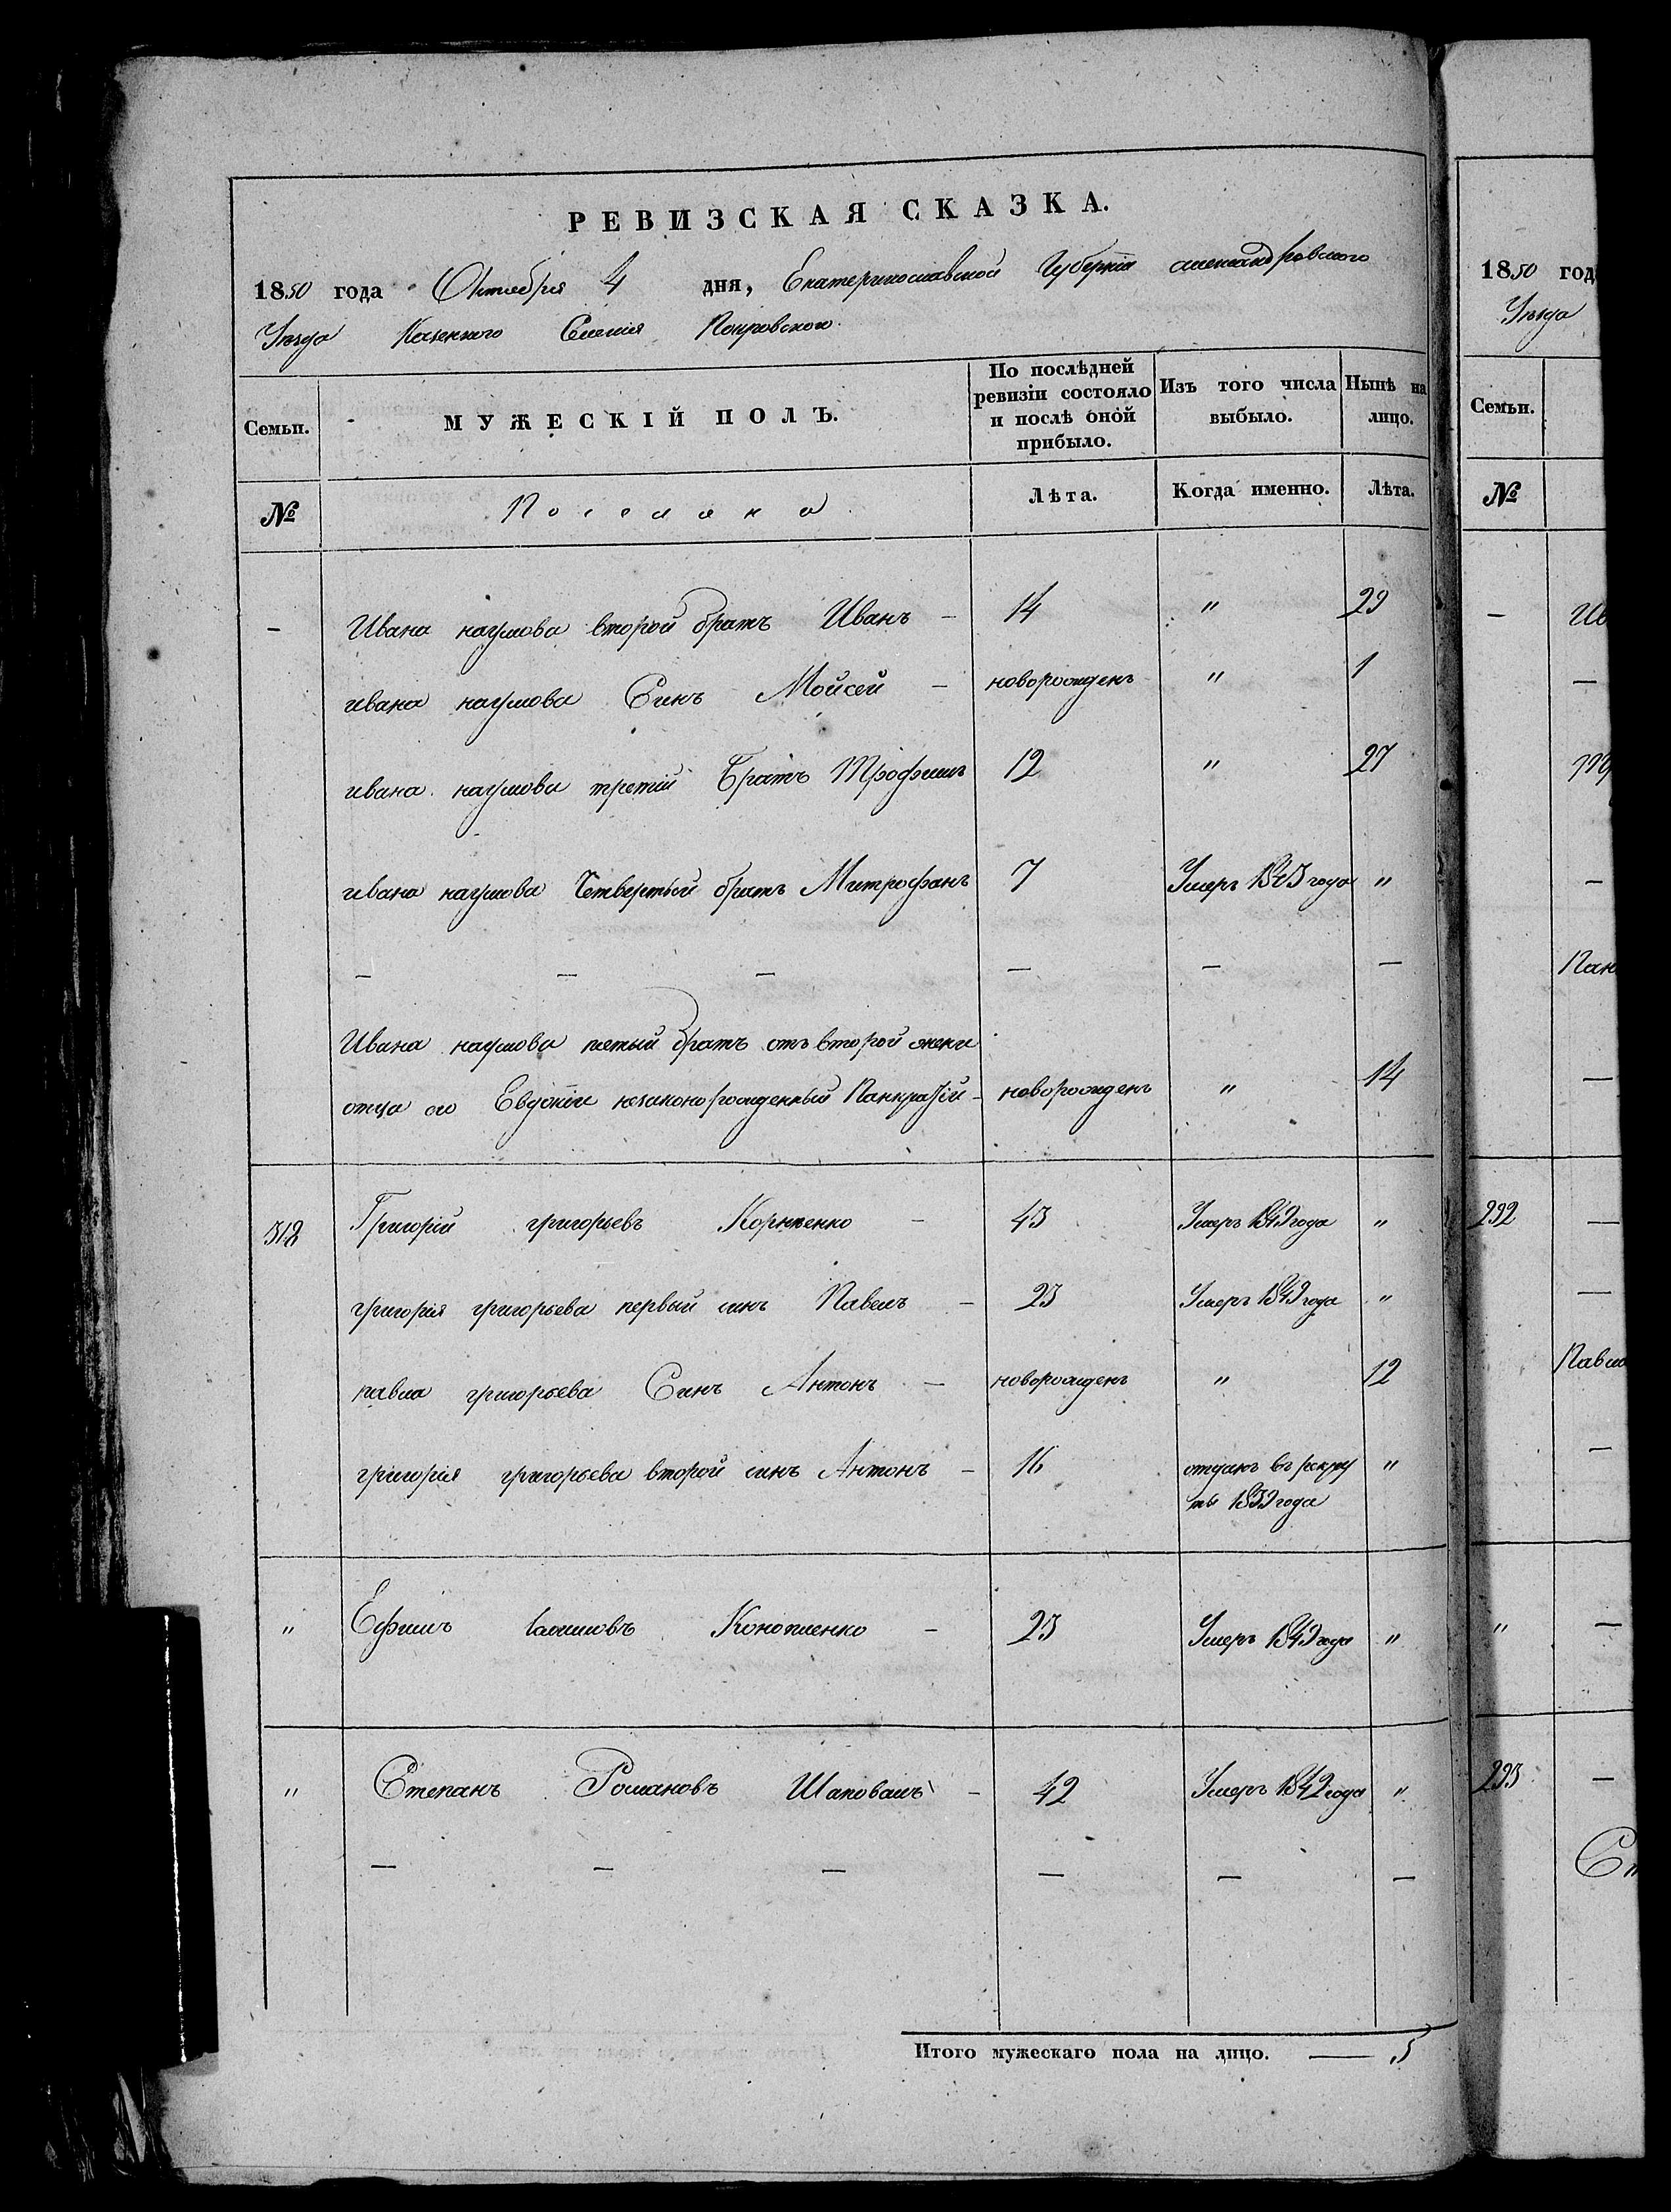 РЕВИЗСКАЯ СКАЗКА.
1850 года Октября 4 дня, Екатеринославской Губерніи александровского
Уезда Казенного Селенія Покровского
Семьи. МУЖЕСКІЙ ПОЛЪ. По послѣдней ревизіи состояло и послѣ оной прибыло. Изъ того числа выбыло. Нынѣ на лицо.
№ Поселяно Лѣта. Когда именно. Лѣта.
— Ивана наумова второй братъ Иванъ — 14 " 29
ивана наумова Синъ Мойсей — новорожденъ " 1
ивана наумова третій Братъ Трофимъ 12 " 27
ивана наумова Четвертый братъ Митрофанъ 7 Умеръ года "
— — — — — —
Ивана наумова пятый братъ отъ второй жени
отца его Евдокіи незаконорожденный Панкратій — новорожденъ " 14
Григорій григорьевъ — 43 Умеръ 1849 года "
григорія григорьева первый синъ Павелъ — 23 Умеръ 1849 года "
павла григорьева Синъ Антонъ — новорожденъ " 12
григорія григорьева второй синъ Антонъ — 16 отданъ въ рекру "
ты 1839 года
" Ефимъ Конопленко — 23 Умеръ 1849 года "
" Степанъ Романовъ Шаповалъ — 42 Умеръ 1842 года "
— — — — — —
Итого мужескаго пола на лицо. — 5
1850 год
Уезда
Семьи.
№
—
Ив
—
—
Пан
—
292 —
—
Павла
—
" —
293 —